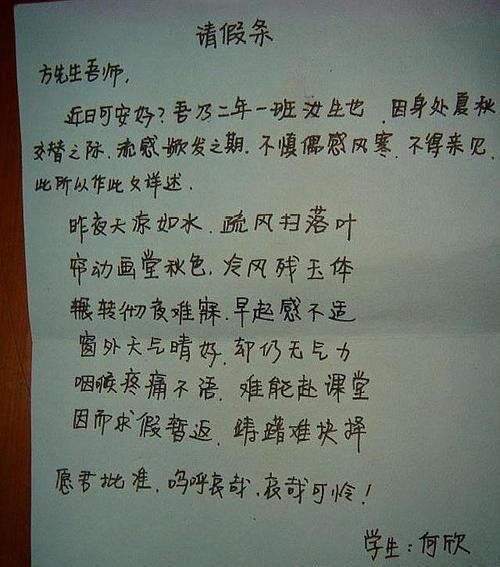 请假条
方先生吾师，
近日可安好？吾乃二年一班汝生也，因身处夏秋
交替之际，流感掀发之期，不慎偶感风寒，不得亲见，
此所以作此文详述．
昨夜天凉如水，疏风扫落叶
帘动画堂秋色，冷风残玉体
辗转彻夜难寐，早起感不适
窗外天气晴好，却仍无气力
咽喉疼痛不语，难能赴课堂
因而求假暂返，踌躇难抉择
愿君批准，呜呼哀哉，哀哉可怜！
学生：何欣